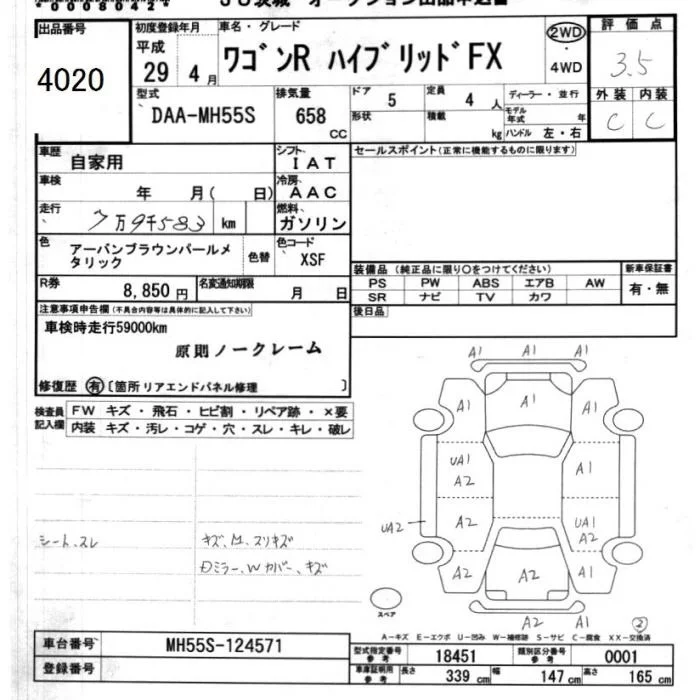 出品番号
4020
初度登録年月
平成
29 4月
車名・グレード
ワゴンR ハイブリッドFX
2WD
4WD
評価点
3.5
型式
DAA-MH55S
排気量
658
CC
ドア
5
定員
4 人
ディーラー・並行
形状
積載
kg
モデル年式 年
ハンドル 左・右
外装 内装
C C
車歴
自家用
シフト
IAT
セールスポイント(正常に機能するものに限ります)
車検
年 月( 日)
冷房
AAC
走行
7万9千583 km
燃料
ガソリン
色
アーバンブラウンパールメタリック
色替
色コード
XSF
装備品(純正品に限り○をつけてください)
新車保証書
PS PW ABS エアB AW
SR ナビ TV カワ
有・無
R券
8,850 円
名変通知期限
月 日
後日品
注意事項申告欄(不具合内容等は具体的に記入して下さい)
車検時走行59000km
原則ノークレーム
修復歴 有 [箇所 リアエンドパネル修理 ]
検査員記入欄
FW キズ・飛石・ヒビ割・リペア跡・×要
内装 キズ・汚レ・コゲ・穴・スレ・キレ・破レ
シート、スレ
キズ、M、スリキズ
Dミラー、Wカバー、キズ
A1 A1 A1
A1 A1 A1
UA1 A2 A1
UA2 A2 UA1 A2
A2 A2 A2
A2 A1 2
スペア
A-キズ E-エクボ U-凹み W-補修跡 S-サビ C-腐食 XX-交換済
車台番号
MH55S-124571
登録番号
型式指定番号 参考
18451
類別区分番号 参考
0001
車庫証明用 参考
長さ 339 cm 幅 147 cm 高さ 165 cm